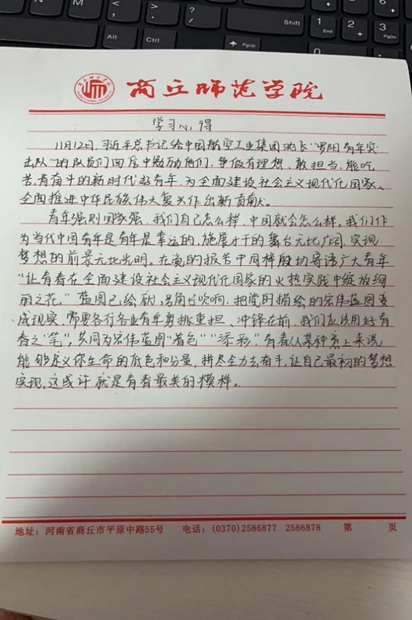 商丘师范学院
学习心得
11月12日,习近平总书记给中国航空工业集团沈飞"罗阳青年突
击队"的队员们回信中激励他们,争做有理想、敢担当、能吃
苦、肯奋斗的新时代好青年,为全面建设社会主义现代化国家、
全面推进中华民族伟大复兴作出新贡献。
青年强则国家强,我们自己怎么样,中国就会怎么样,我们作
为当代中国青年是青年是幸运的,施展才干的舞台无比广阔,实现
梦想的前景无比光明。在党的报告中同样殷切寄语广大青年
"让青春在全面建设社会主义现代化国家的火热实践中绽放绚
丽之花。"蓝图已绘就,号角已吹响,把党用描绘的宏伟蓝图变
成现实,需要各行各业青年勇挑重担、冲锋在前,我们应该用好青
春之"笔",共同为宏伟蓝图"着色""添彩。"青春从某种意义上来说
能够定义你生命的底色和分量,拼尽全力去奋斗,让自己最初的梦想
实现,这或许就是青春最美的模样。
地址:河南省商丘市平原中路55号 电话:(0370)2586877 2586878 第 页